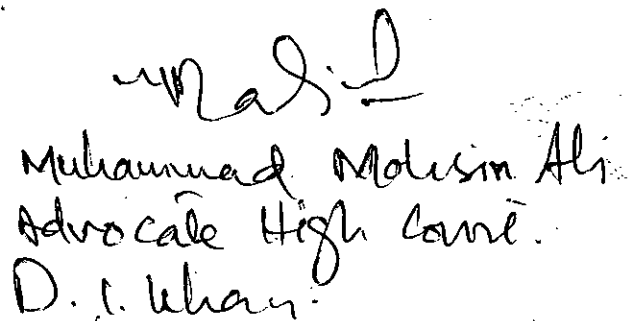 Muhammad Mohsin Ali
Advocate High Court.
D. I. Khan.